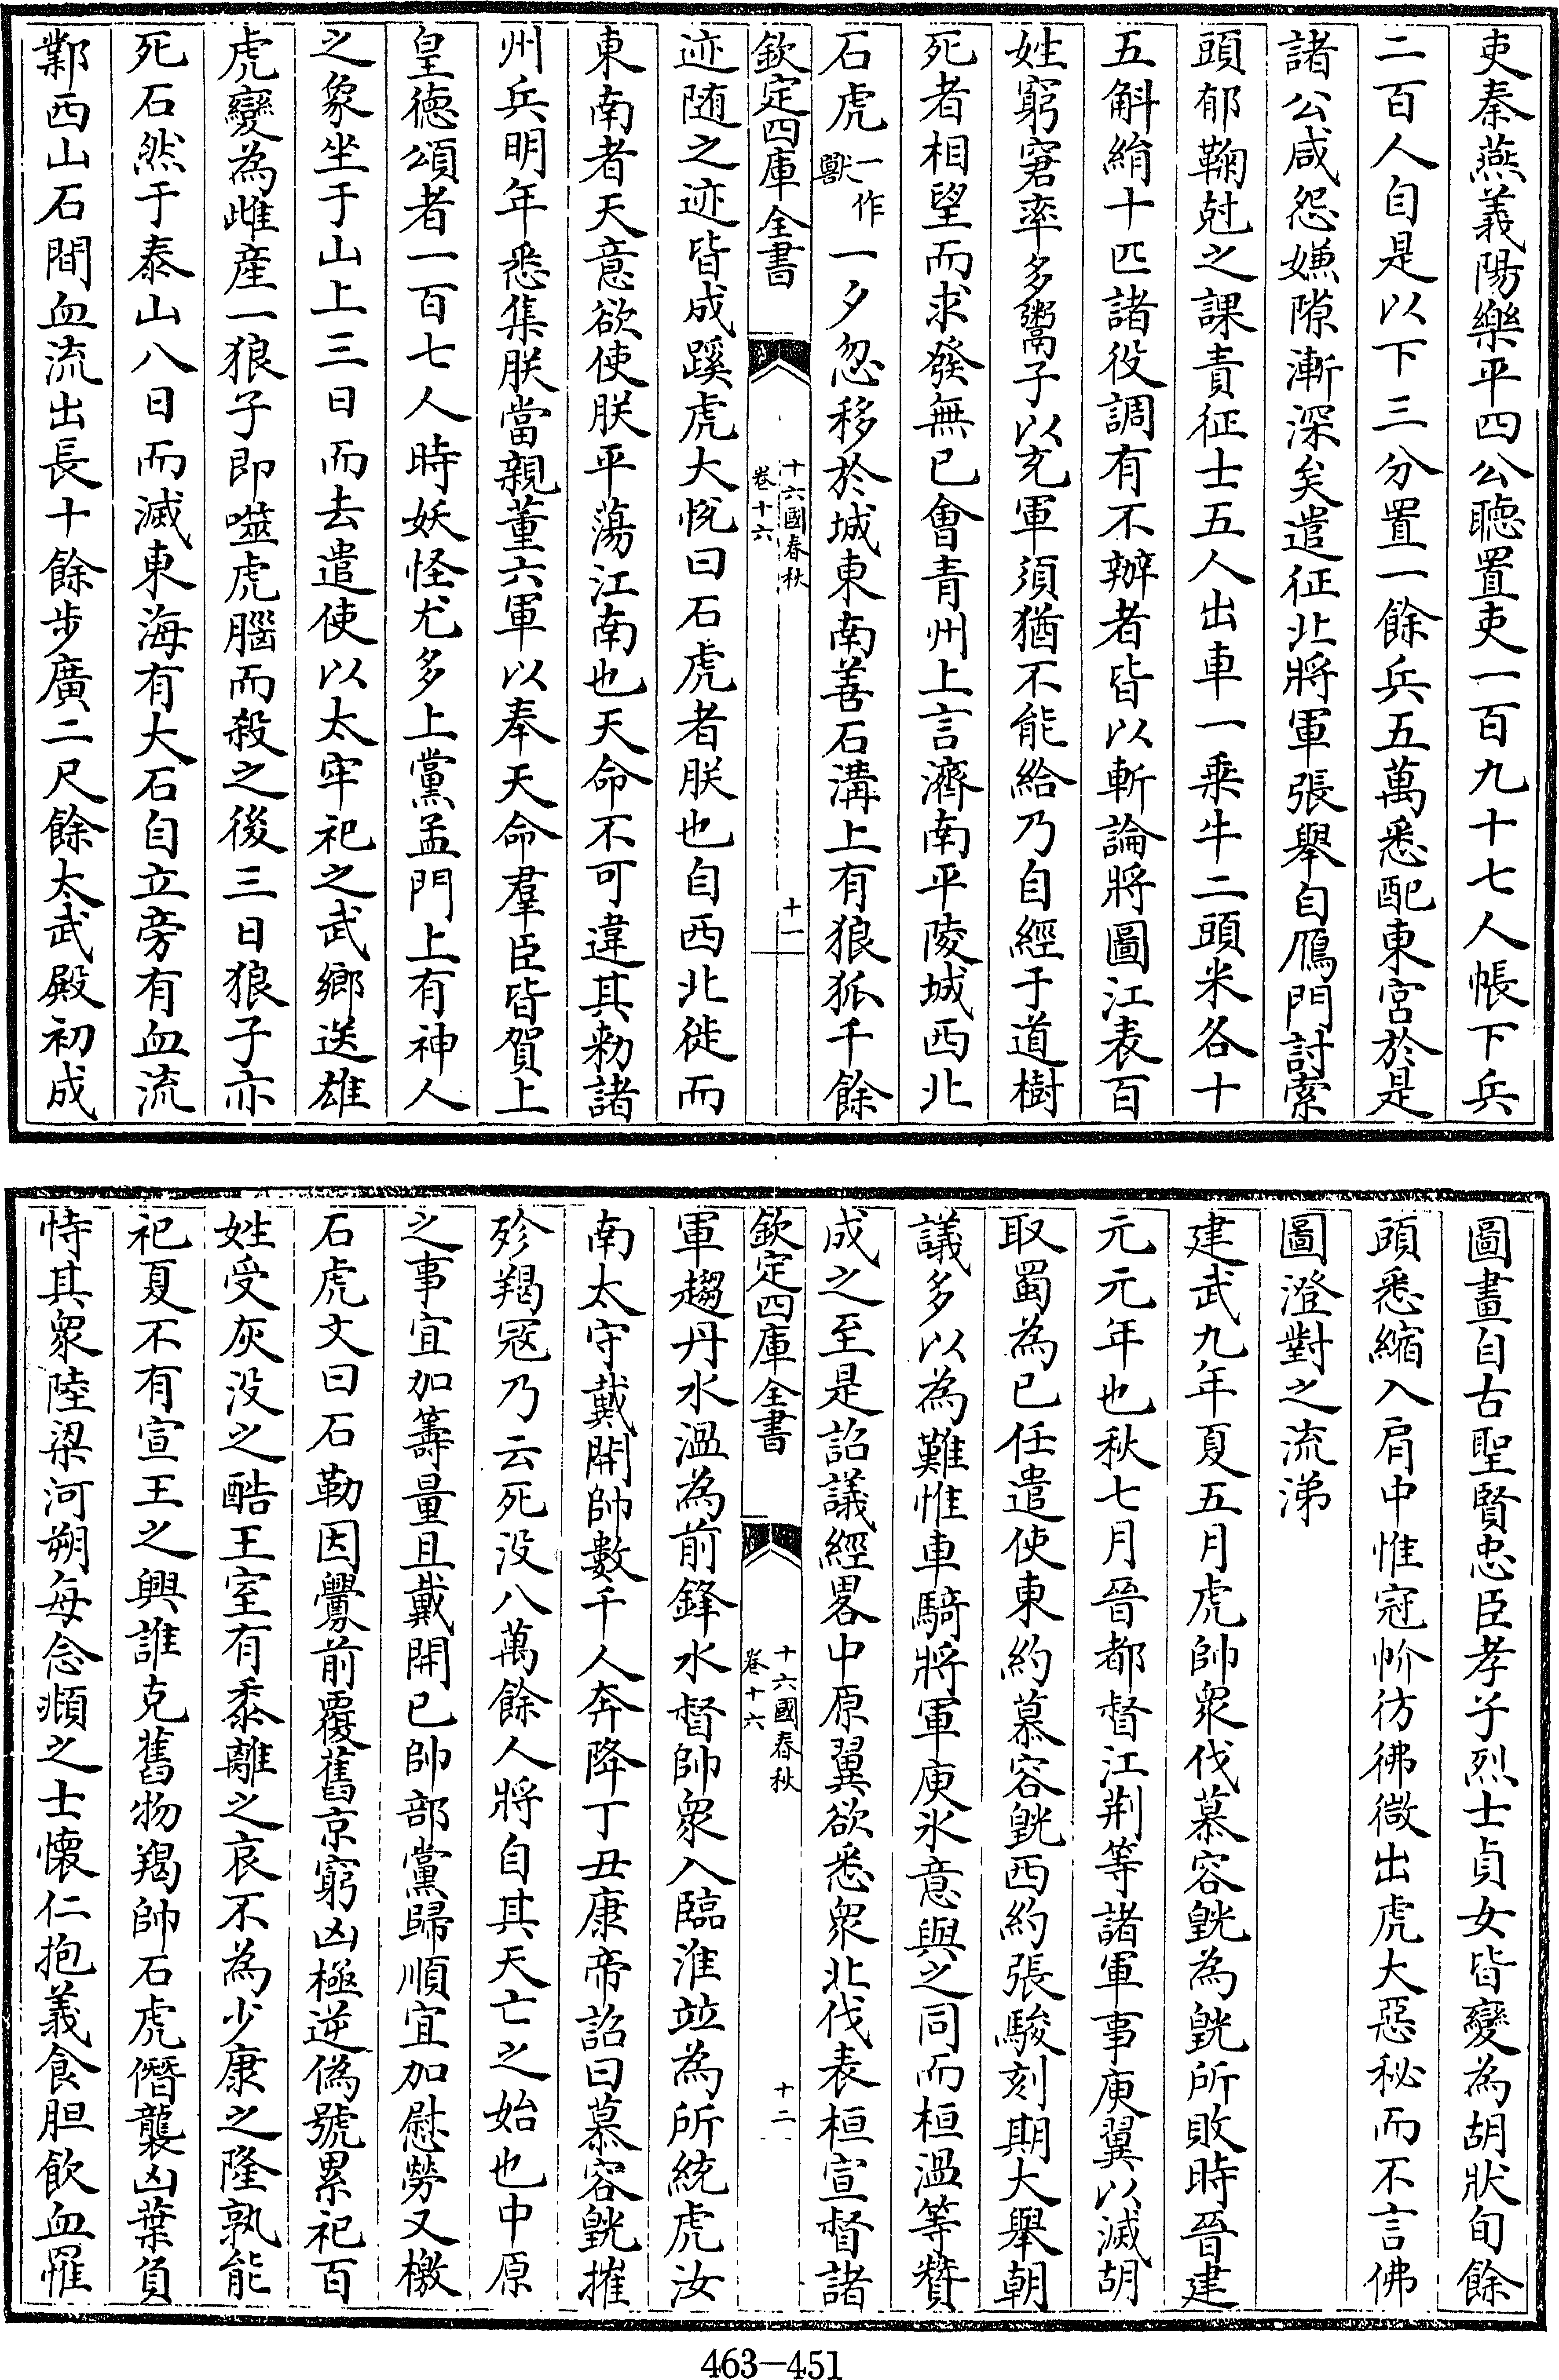 吏秦燕義陽樂平四公聽置吏一百九十七人帳下兵
二百人自是以下三分置一餘兵五萬悉配東宮於是
諸公咸怨嫌隙漸深矣遣征北將軍張舉自鴈門討索
頭郁鞠尅之課責征士五人出車一乗牛二頭米各十
五斛絹十匹諸役調有不辦者皆以斬論將圖江表百
姓窮窘率多鬻子以充軍須猶不能給乃自經于道樹
死者相望而求發無已會青州上言濟南平陵城西北
石虎一作獸一夕忽移於城東南善石溝上有狼狐千餘
欽定四庫全書
十六國春秋
卷十六
十一
迹随之迹皆成蹊虎大悅曰石虎者朕也自西北徙而
東南者天意欲使朕平蕩江南也天命不可違其勑諸
州兵明年悉集朕當親董六軍以奉天命羣臣皆賀上
皇德頌者一百七人時妖怪尤多上黨孟門上有神人
之象坐于山上三日而去遣使以太牢祀之武鄉送雄
虎變為雌産一狼子即噬虎腦而殺之後三日狼子亦
死石然于泰山八日而滅東海有大石自立旁有血流
鄴西山石間血流出長十餘步廣二尺餘太武殿初成
圖畫自古聖賢忠臣孝子烈士貞女皆變為胡狀旬餘
頭悉縮入肩中惟冠㡇彷彿微出虎大惡秘而不言佛
圖澄對之流涕
建武九年夏五月虎帥衆伐慕容皝為皝所敗時晉建
元元年也秋七月晉都督江荆等諸軍事庾翼以滅胡
取蜀為已任遣使東約慕容皝西約張駿刻期大舉朝
議多以為難惟車騎將軍庾氷意與之同而桓溫等贊
成之至是詔議經畧中原翼欲悉衆北伐表桓宣督諸
欽定四庫全書
十六國春秋
卷十六
十二
軍趨丹水溫為前鋒水督帥衆入臨淮竝為所統虎汝
南太守戴開帥數千人奔降丁丑康帝詔曰慕容皝摧
殄羯冦乃云死没八萬餘人將自其天亡之始也中原
之事宜加籌量且戴開已帥部黨歸順宜加慰勞又檄
石虎文曰石勒因釁前覆舊京窮凶極逆偽號累祀百
姓受灰没之酷王室有黍離之哀不為少康之隆孰能
祀夏不有宣王之興誰克舊物羯帥石虎僭襲凶葉負
恃其衆陸梁河朔每念㐮之士懷仁抱義食胆飲血罹
463-451